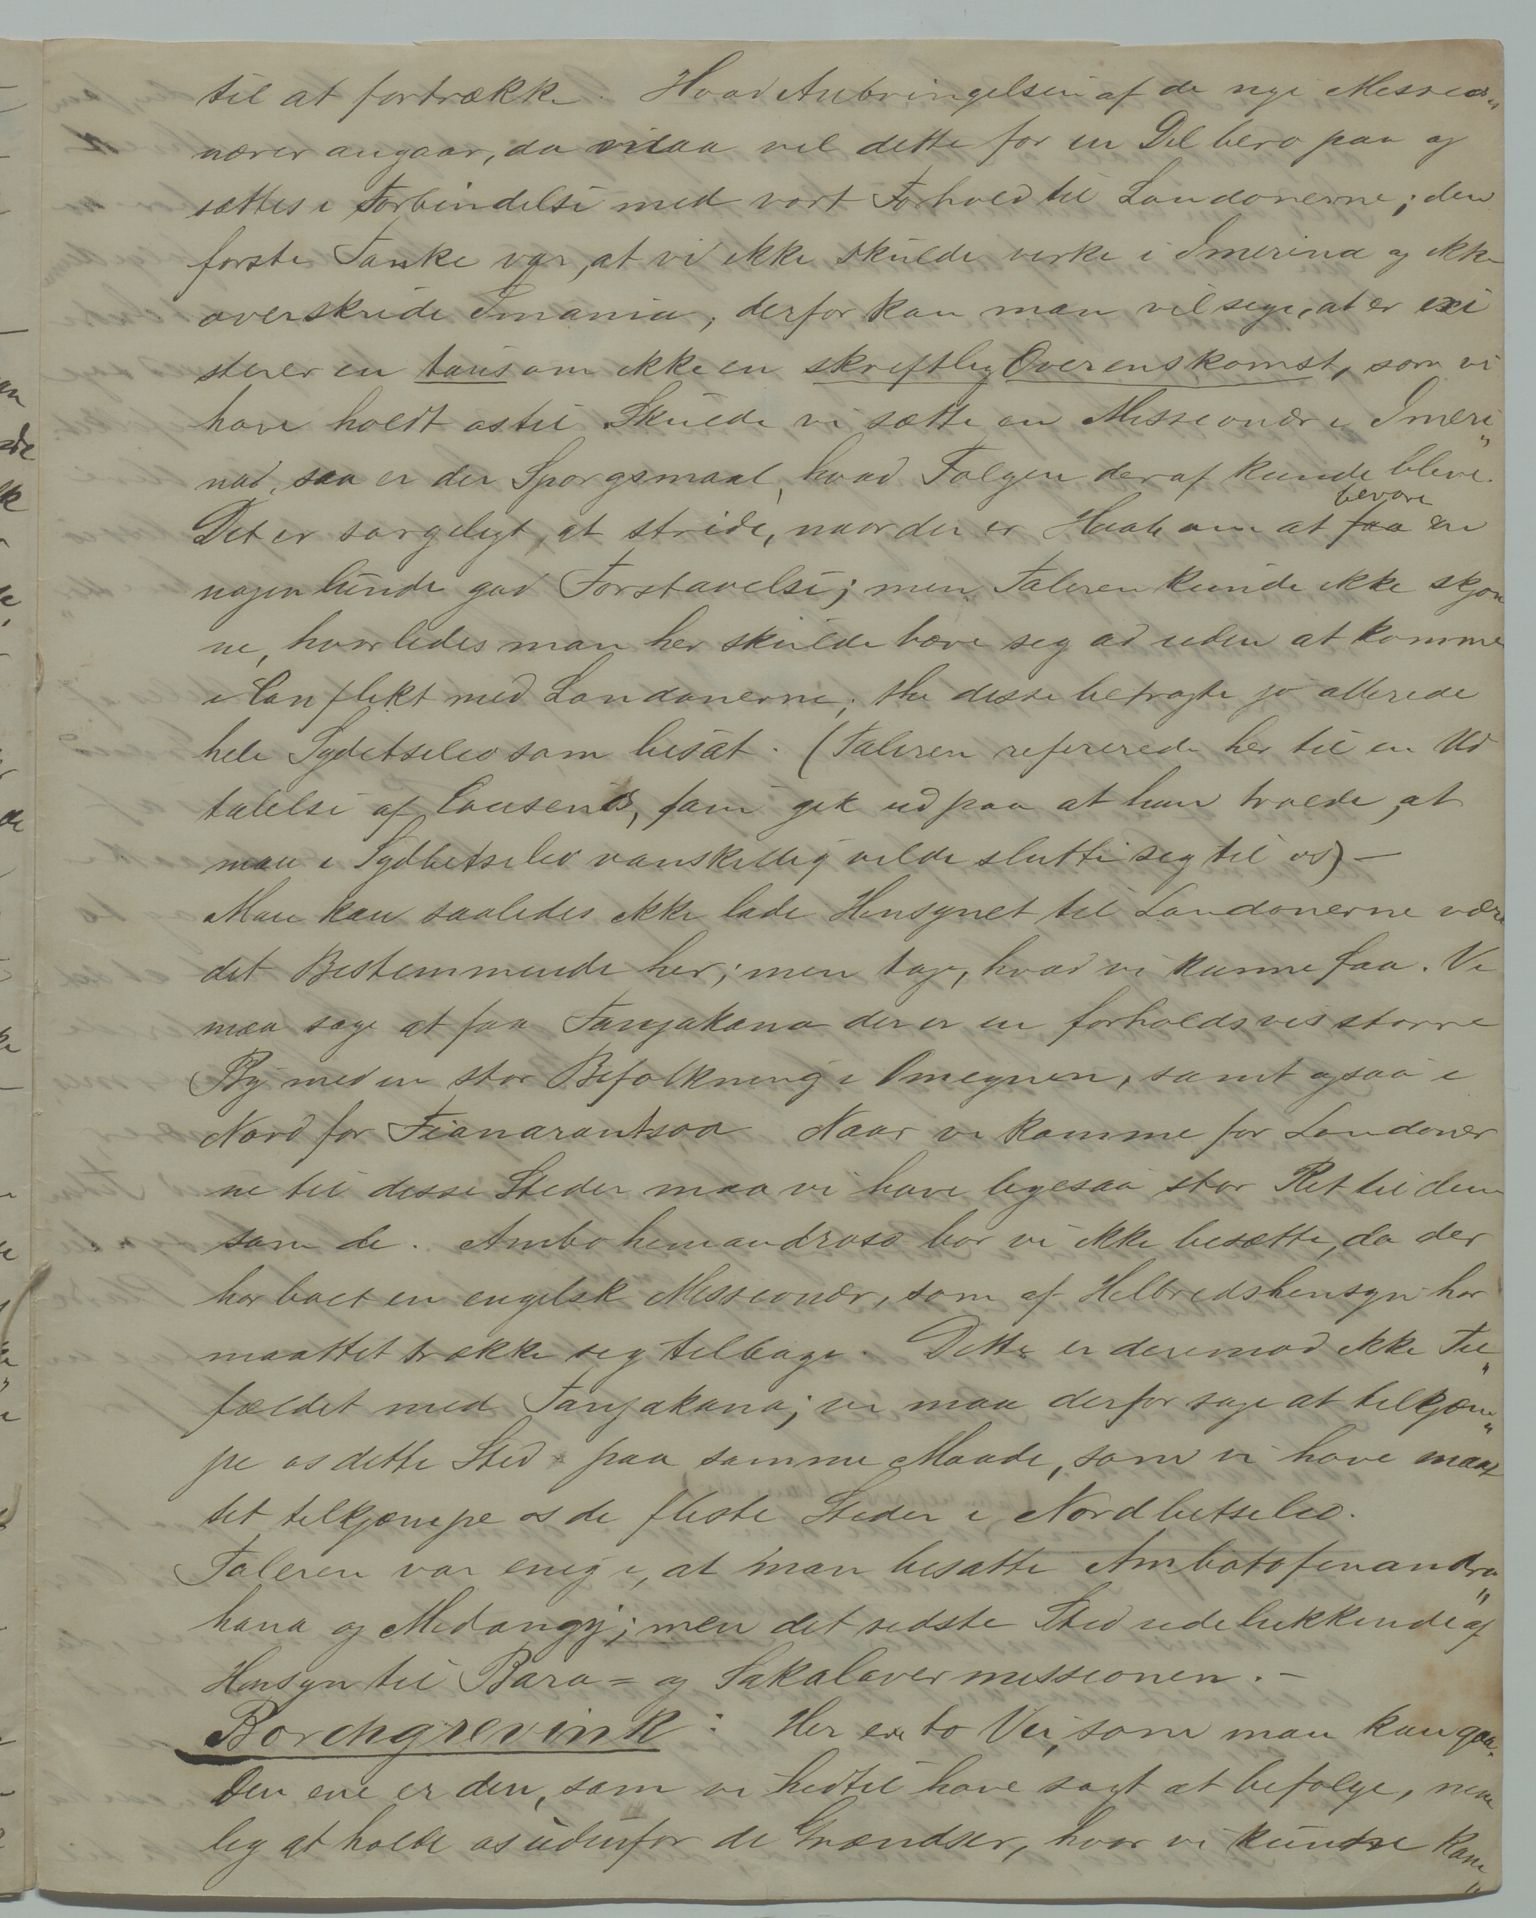 til at fortrække. Hvad Anbringelsen af de nye Missio„
nærer angaar, da vilaa vel dette for en Del bero paa og
sættes i Forbindelse med vort Forhold til Londonerne; den
første Tanke var, at vi ikke skulde virke i Imerina og ikke
overskride Imania, derfor kan man vel sige, at er exi
sterer en taus om ikke en skriftlig Overenskomst, som vi
have holdt os til. Skulde vi sætte en Missionær i Imeri„
na, saa er der Spørgsmaal, hvad Følgen deraf kunde blive.
Det er sørgeligt, at stride, naar der er Haab om at faa bevare en
nogenlunde god Forstaaelse; men Taleren kunde ikke skjøn
ne, hvorledes man her skulde bære seg ad uden at komme
i Conflikt med Londonerne; thi disse betragte jo allerede
hele Sydbetsileo som besat. (Taleren refererede her til en Ud
talelse af Cousens, som gik ud paa at han troede, at
man i Sydbetsileo vanskellig vilde slutte seg til os) —
Man kan saaledes ikke lade Hensynet til Londonerne være
det Bestemmende her; men tage, hvad vi kunne faa. Vi
maa søge at faa Fanjakana der er en forholdsvis større
By med en stor Befolkning i Omegnen, samt ogsaa i
Nord for Fianarantsoa Naar vi komme før Londoner
ne til disse Steder maa vi have ligesaa stor Ret til dem
som de. Ambohimandroso bør vi ikke besætte, da der
har boet en engelsk Missionær, som af Helbredshensyn har
maattet trække seg tilbage. Dette er derimod ikke Til„
fældet med Fanjakana; vi maa derfor søge at tilkjæm„
pe os dette Sted paa samme Maade, som vi have maat
tet tilkjæmpe os de fleste Steder i Nordbetsileo.
Taleren var enig i, at man besatte Ambatofinandra„
hana og Midongy; men det sidste Sted udelukkende af
Hensyn til Bara= og Sakalavermissionen. —
Borchgrevink: Her er to Vei, som man kan gaa.
Den ene er den, som vi hidtil have søgt at befølge, nem
lig at holde os udenfor de Grændser, hvor vi kunne kom„